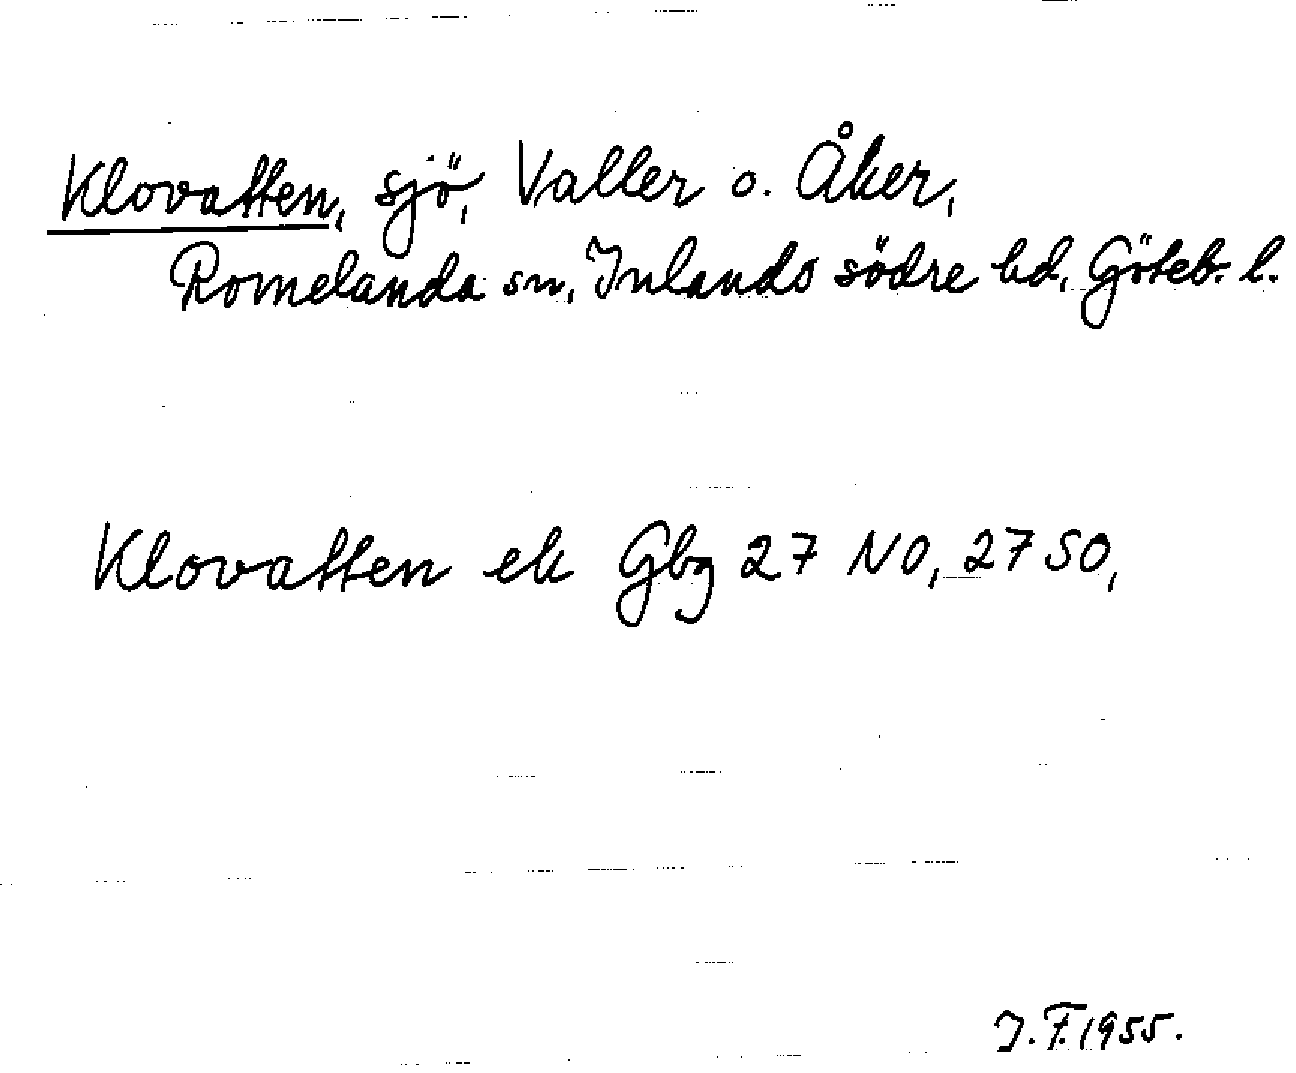 Klovatten, sjö, Valler o. Åker,
Romelanda sn, Inlands södre hd, Göteb. l.
Klovatten ek Gbg 27 NO, 27 SO,
J.F. 1955.